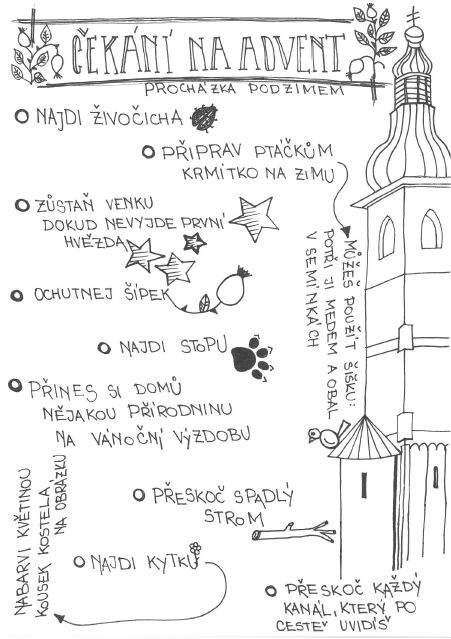 ČEKÁNÍ NA ADVENT
PROCHÁZKA PODZIMEM
NAJDI ŽIVOČICHA
PŘIPRAV PTÁČKŮM
KRMÍTKO NA ZIMU
MŮŽEŠ POUŽÍT ŠIŠKU:
POTŘI JI MEDEM A OBAL
V SEMÍNKÁCH
ZŮSTAŇ VENKU
DOKUD NEVYJDE PRVNÍ
HVĚZDA
OCHUTNEJ ŠÍPEK
NAJDI STOPU
PŘINES SI DOMŮ
NĚJAKOU PŘÍRODNINU
NA VÁNOČNÍ VÝZDOBU
PŘESKOČ SPADLÝ
STROM
NAJDI KYTKU
NABARVI KVĚTINOU
KOUSEK KOSTELA
NA OBRÁZKU
PŘESKOČ KAŽDÝ
KANÁL, KTERÝ PO
CESTĚ UVIDÍŠ